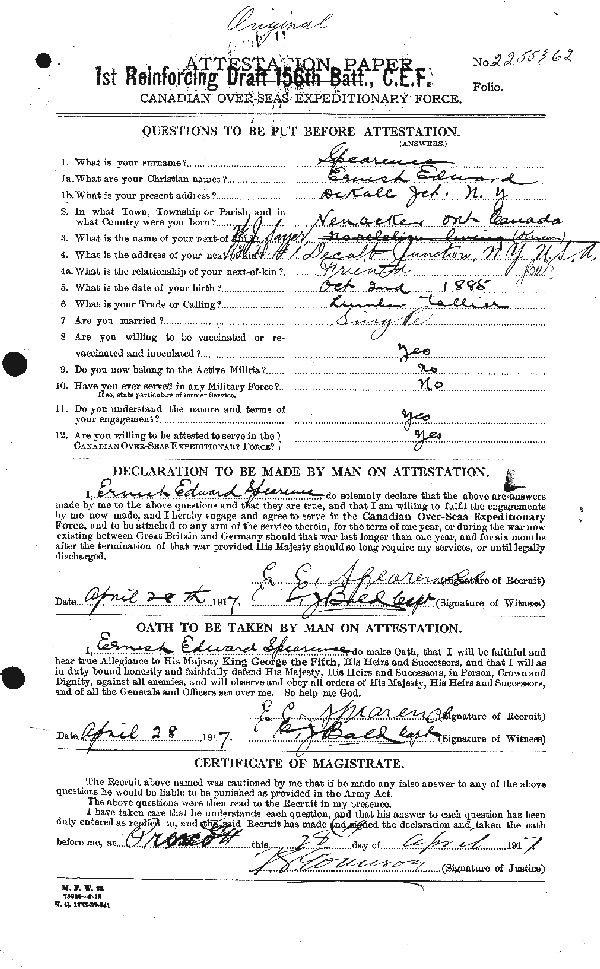 Original
ATTESTATION PAPER. No. 2255362
1st Reinforcing Draft 156th Batt., C.E.F.
Folio.
CANADIAN OVER-SEAS EXPEDITIONARY FORCE.
QUESTIONS TO BE PUT BEFORE ATTESTATION.
(ANSWERS.)
1. What is your surname? Spearence
1a. What are your Christian names? Ernest Edward
1b. What is your present address? DeKalb Jct. N.Y.
2. In what Town, Township or Parish, and in
what Country were you born? Ont Canada
3. What is the name of your next-of-kin?
4. What is the address of your next-of-kin? Decalb Junction, N.Y. U.S.A.
4a. What is the relationship of your next-of-kin? Friend
5. What is the date of your birth? Oct 2nd 1888
6. What is your Trade or Calling?
7. Are you married? Single
8. Are you willing to be vaccinated or re-
vaccinated and inoculated? Yes
9. Do you now belong to the Active Militia? No
10. Have you ever served in any Military Force? No
If so, state particulars of former Service.
11. Do you understand the nature and terms of
your engagement? Yes
12. Are you willing to be attested to serve in the
CANADIAN OVER-SEAS EXPEDITIONARY FORCE? Yes
DECLARATION TO BE MADE BY MAN ON ATTESTATION.
I, Ernest Edward Spearence do solemnly declare that the above are answers
made by me to the above questions and that they are true, and that I am willing to fulfil the engagements
by me now made, and I hereby engage and agree to serve in the Canadian Over-Seas Expeditionary
Force, and to be attached to any arm of the service therein, for the term of one year, or during the war now
existing between Great Britain and Germany should that war last longer than one year, and for six months
after the termination of that war provided His Majesty should so long require my services, or until legally
discharged.
E. E. Spearence (Signature of Recruit)
Date April 28th 1917. (Signature of Witness)
OATH TO BE TAKEN BY MAN ON ATTESTATION.
I, Ernest Edward Spearence do make Oath, that I will be faithful and
bear true Allegiance to His Majesty King George the Fifth, His Heirs and Successors, and that I will as
in duty bound honestly and faithfully defend His Majesty, His Heirs and Successors, in Person, Crown and
Dignity, against all enemies, and will observe and obey all orders of His Majesty, His Heirs and Successors,
and of all the Generals and Officers set over me. So help me God.
E. E. Spearence (Signature of Recruit)
Date April 28 1917. (Signature of Witness)
CERTIFICATE OF MAGISTRATE.
The Recruit above named was cautioned by me that if he made any false answer to any of the above
questions he would be liable to be punished as provided in the Army Act.
The above questions were then read to the Recruit in my presence.
I have taken care that he understands each question, and that his answer to each question has been
duly entered as replied to, and the said Recruit has made and signed the declaration and taken the oath
before me, at Prescott this 28 day of April 1917
(Signature of Justice)
M. F. W. 23